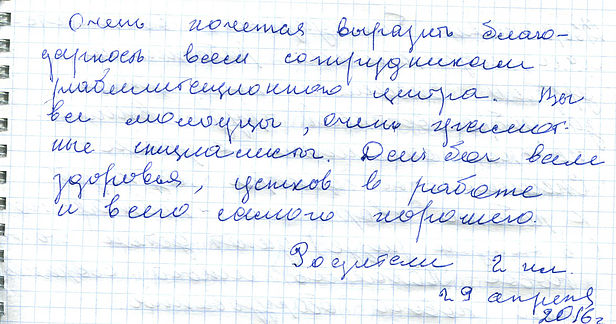 Очень хочется выразить благо-
дарность всем сотрудникам
реабилитационного центра. Вы
все молодцы, очень грамот-
ные специалисты. Дай бог вам
здоровья, успехов в работе
и всего самого хорошего.
Родители
29 апреля
2016г